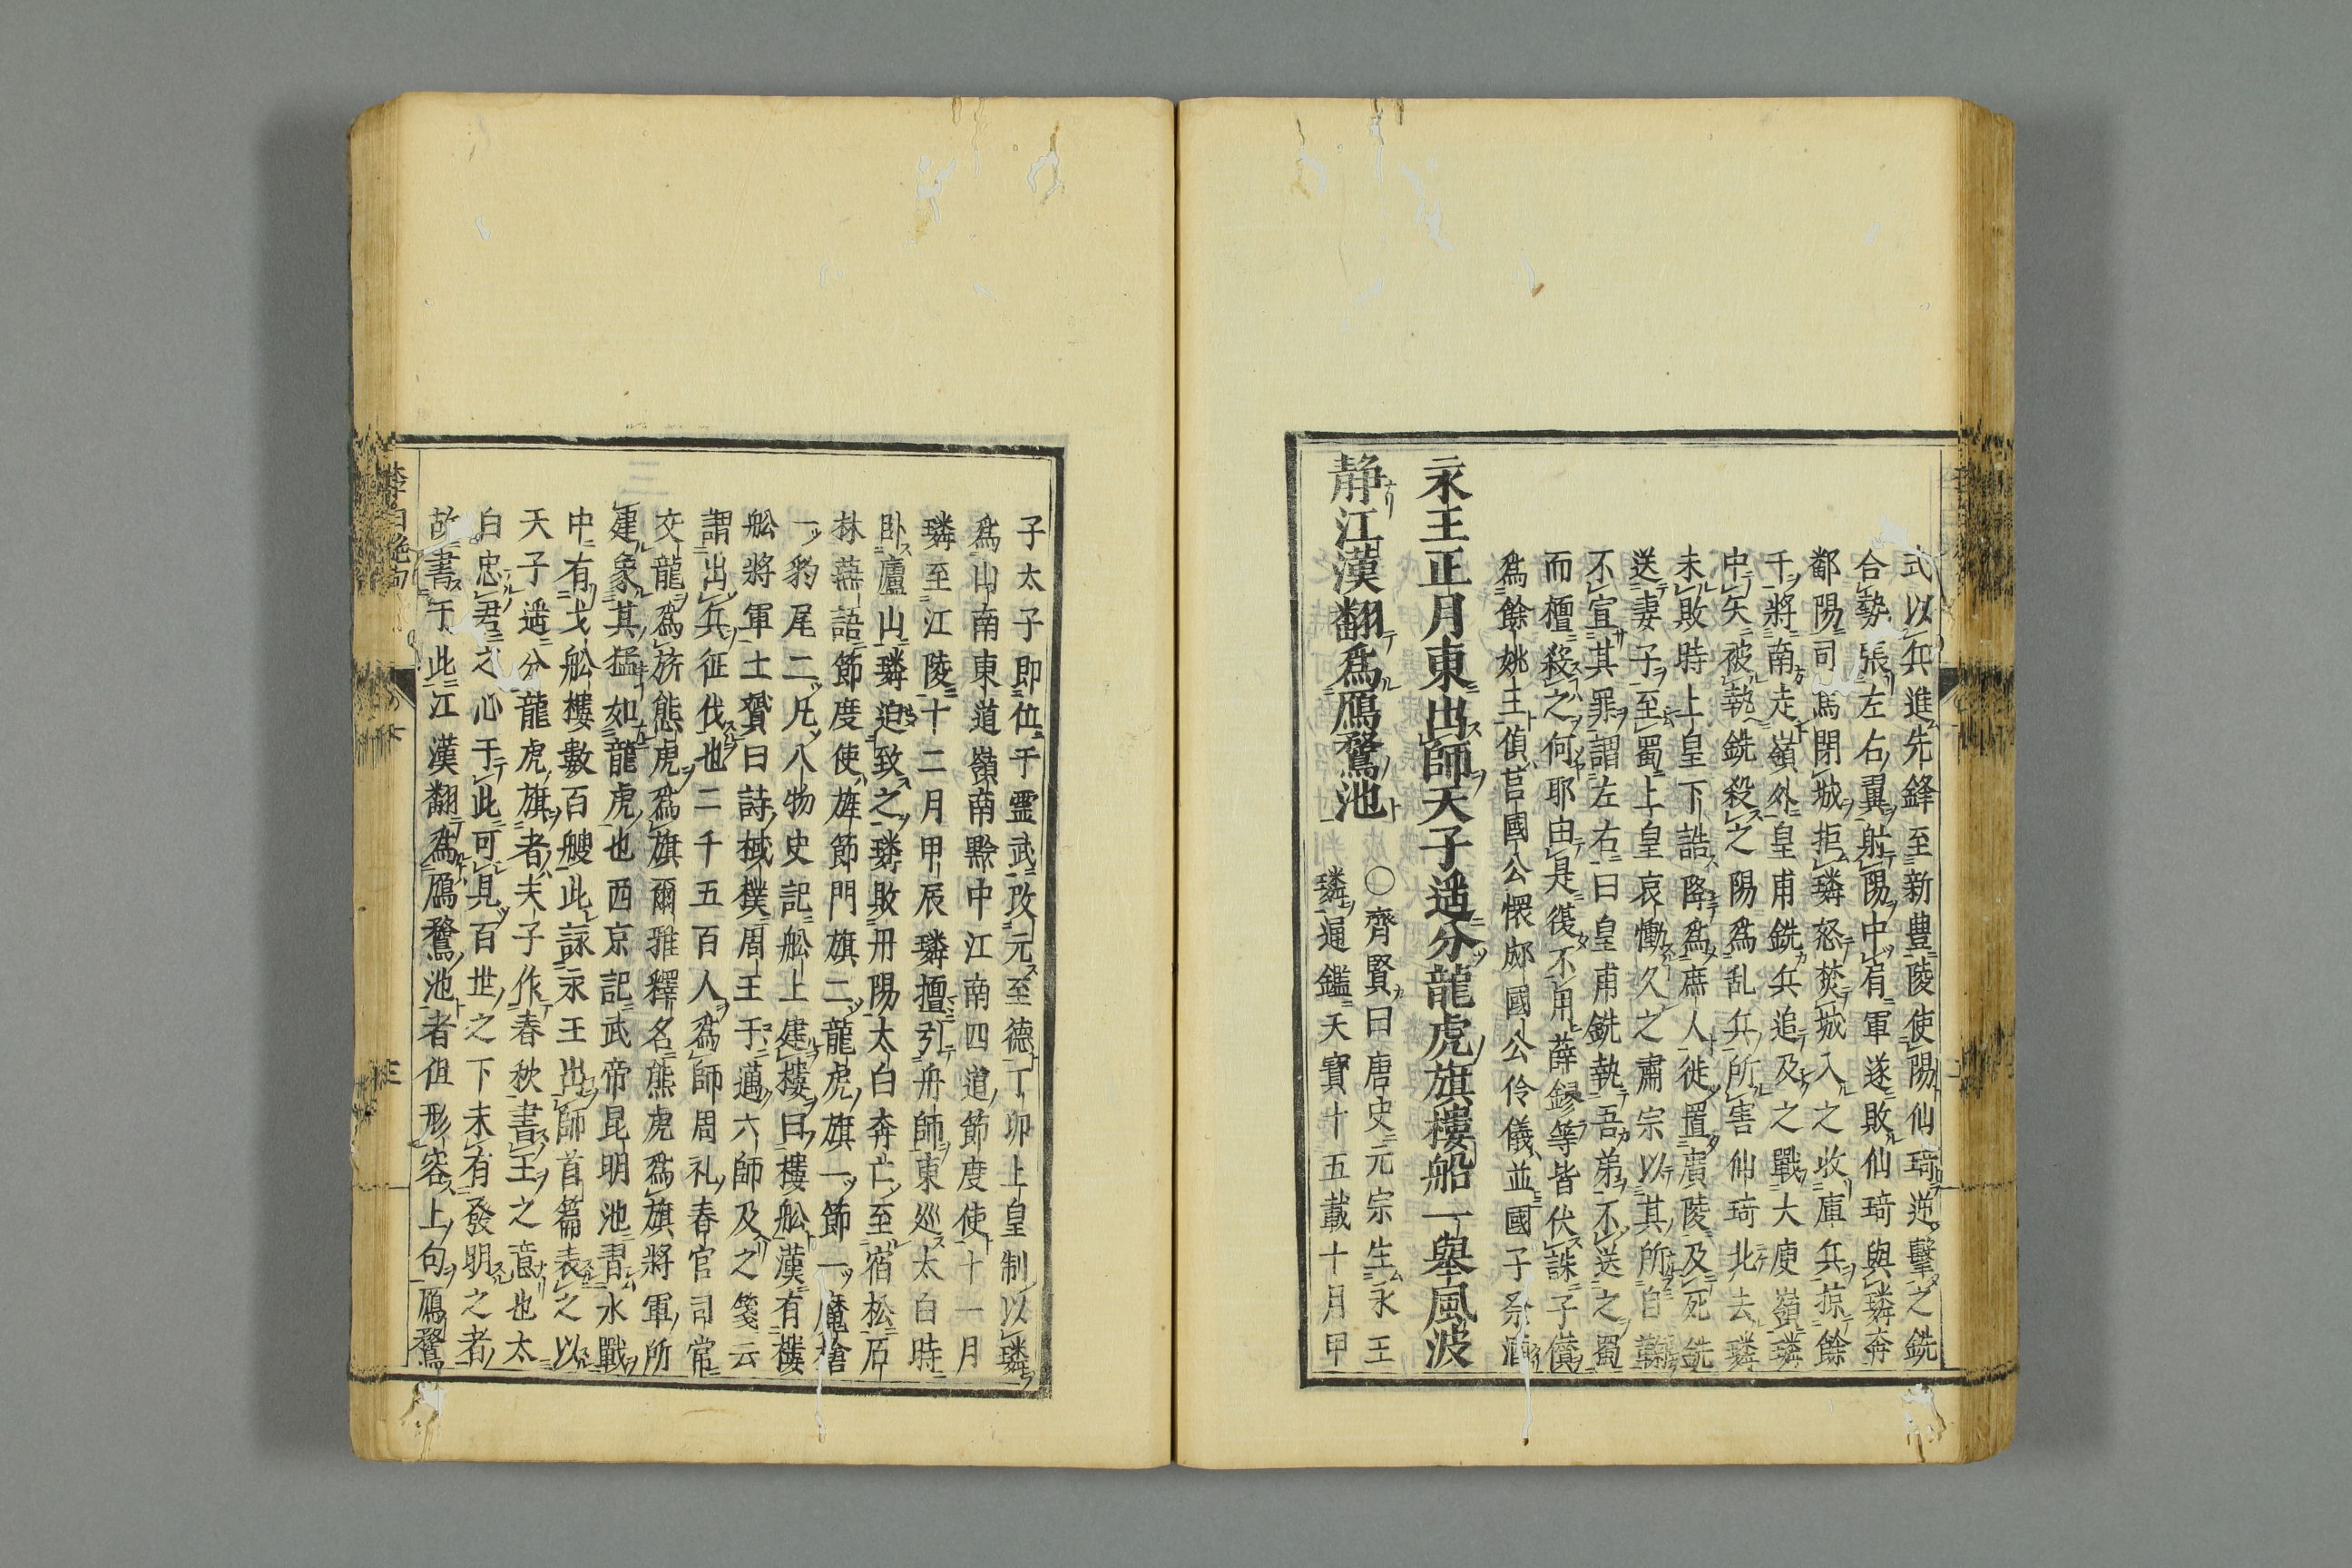 式以兵進先鋒至新豊陵使陽仙琦逆擊之銑
合勢張左右翼射陽中有軍遂敗仙琦與璘奔
鄱陽司馬閉城拒璘怒焚城入之收庫兵掠餘
千將南走嶺外皇甫銑兵追及之戰大庾嶺璘
中矢被執銑殺之陽爲乱兵所害仙琦北去璘
未敗時上皇下誥降爲庶人徙置廣陵及死銑
送妻子至蜀上皇哀慟久之肅宗以其所自
不宣其罪謂左右曰皇甫銑執吾弟不送之蜀
而檀殺之何耶由是復不用薛鏐等皆伏誅子儹
爲餘姚王偵莒國公懷郕國公伶儀並國子祭酒
永王正月東出師天子遥分龍虎旗樓船一舉風波
静江漢翻爲鴈鶩池
○齊賢曰唐史元宗生永王
璘通鑑天寶十五載十月甲
子太子即位于霊武改元至德丁卯上皇制以璘
爲山南東道嶺南黔中江南四道節度使十一月
璘至江陵十二月甲辰璘擅引舟師東巡太白時
卧廬山璘迫致之璘敗丹陽太白奔亡至宿松
林燕語節度使旌節門旗二龍虎旗一節一麾槍
一豹尾二凡八物史記舩上建樓曰樓舩漢有樓
舩將軍土贇曰詩棫樸周王于邁六師及之箋云
謂出兵征伐也二千五百人爲師周礼春官司常
交龍爲旂熊虎爲旗爾雅釋名熊虎爲旗將軍所
建象其猛如龍虎也西京記武帝昆明池習水戰
中有戈舩樓數百艘此詠永王出師首篇表之以
天子遥分龍虎旗者夫子作春秋書王之意也太
白忠君之心于此可見百世之下未有發明之者
故書于此江漢翻爲鴈鶩池者但形容上句鴈鶩
李白絶句
三